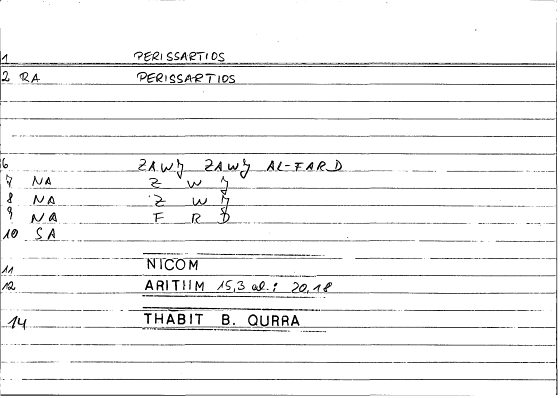 1 PERISSARTIOS
2 RA PERISSARTIOS
6 ZAWJ ZAWJ AL-FARD
7 NA Z W J
8 NA Z W J
9 NA F R D
10 SA
11 NICOM
12 ARITHM 15,3 al.; 20,18
14 THABIT B. QURRA